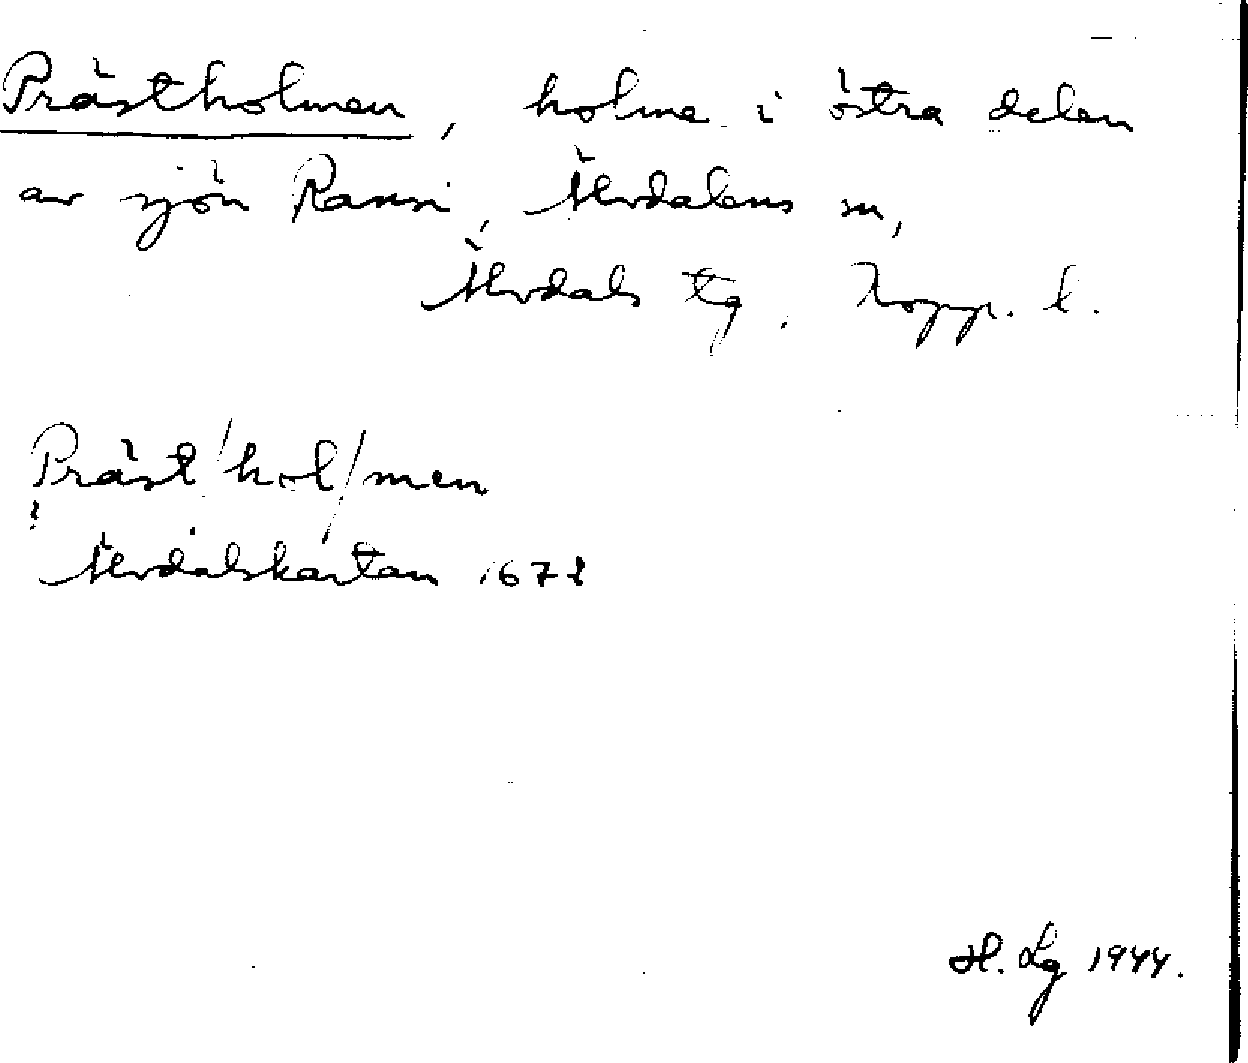 Prästholmen, holme i östra delen
av sjön Ransi, Älvdalens sn,
Älvdals tg. Kopp. l.
Präst/hol/men
Älvdalskartan 1678
H. Lg 1944.